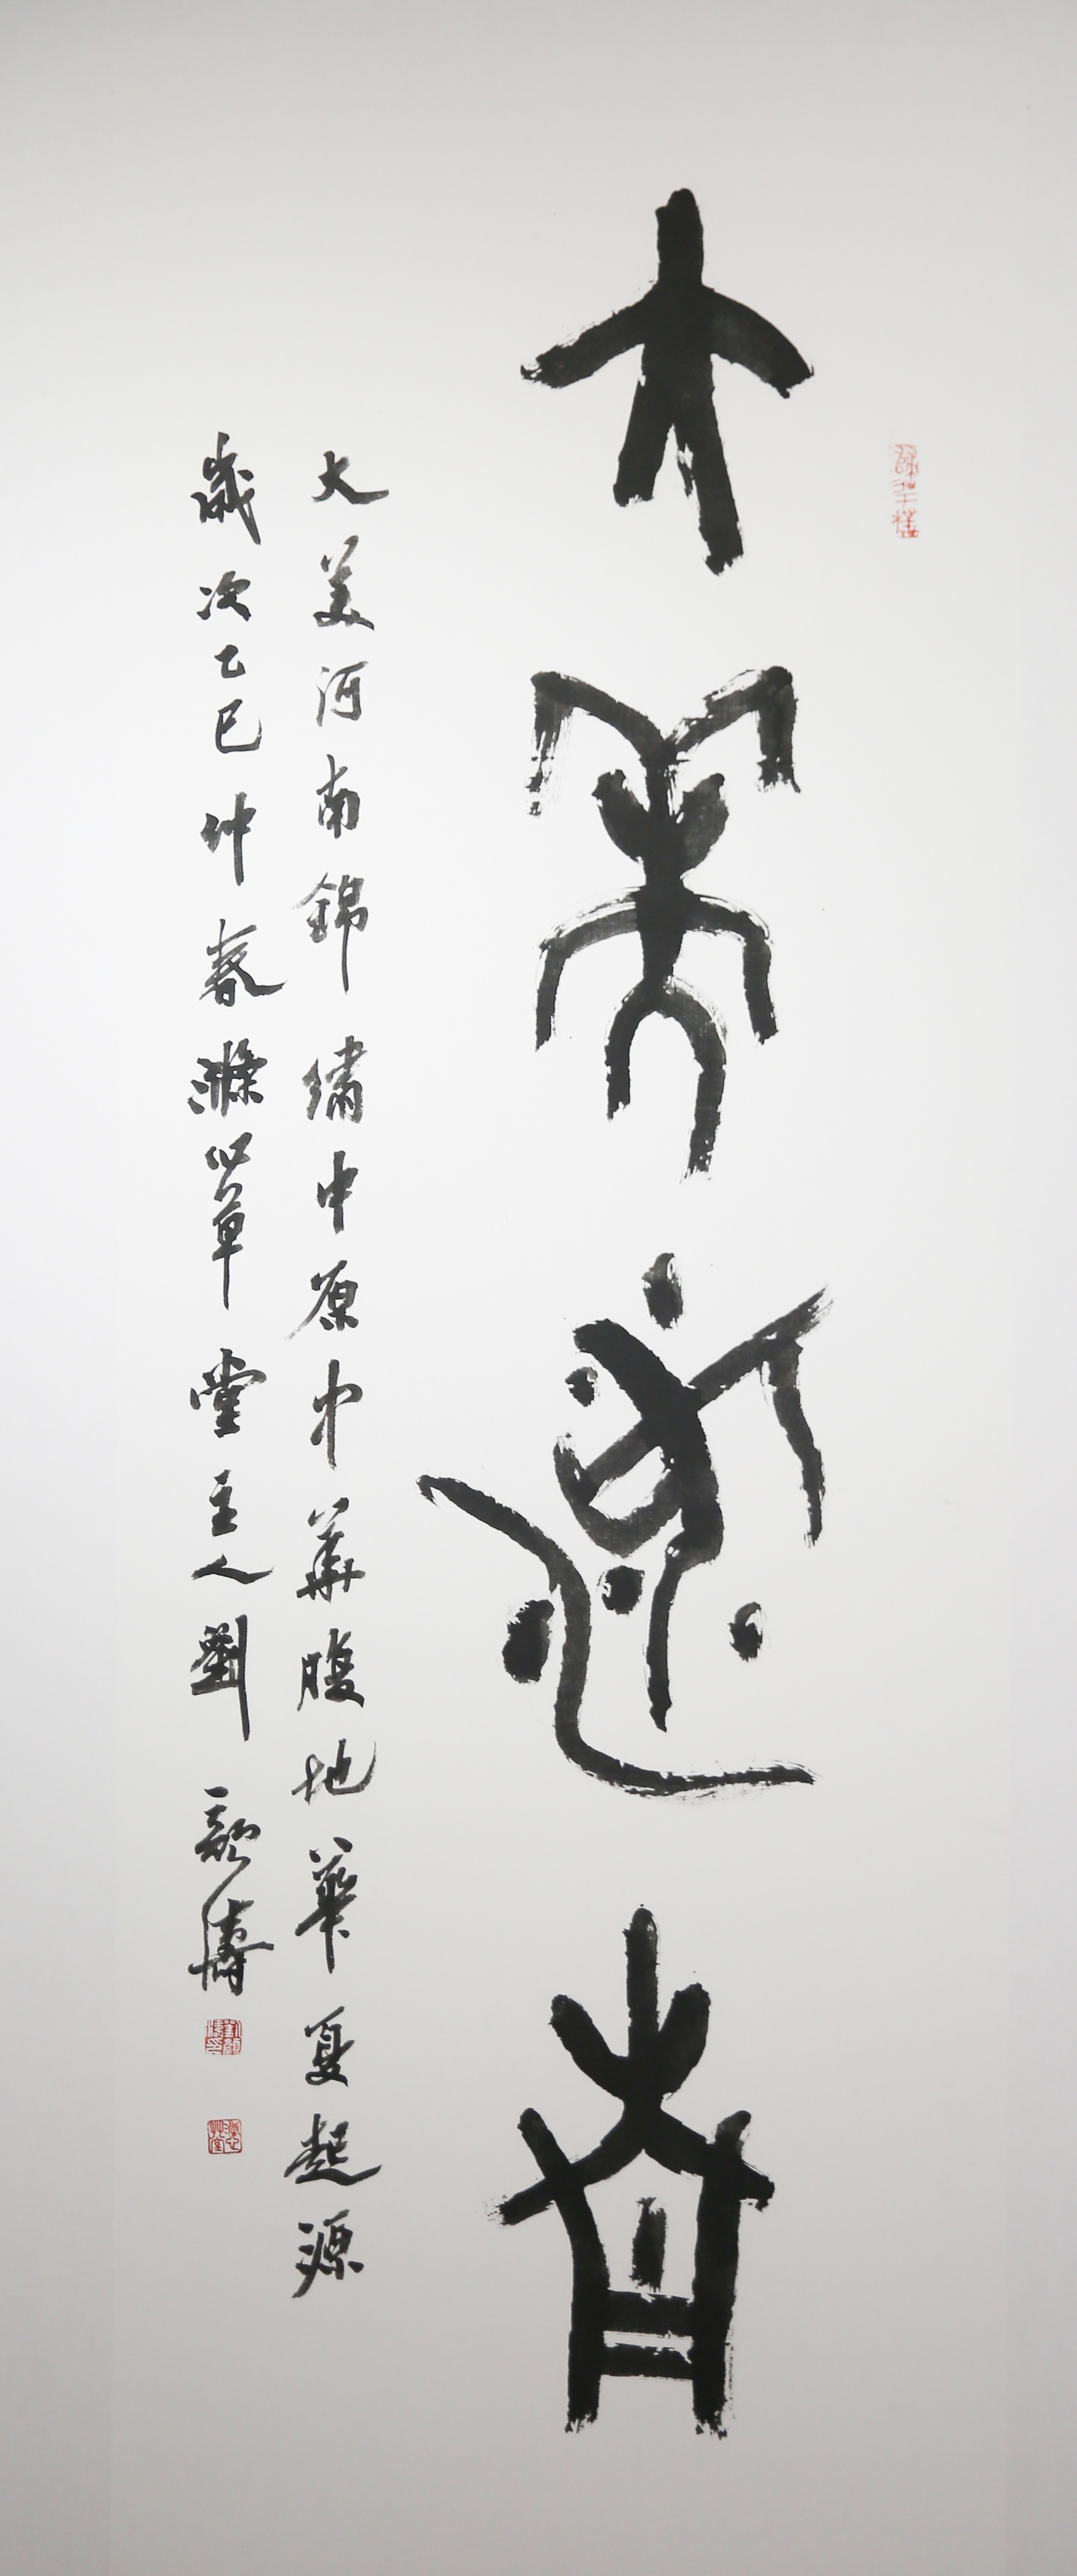 大美河南
大美河南錦繡中原中華腹地華夏起源
歲次乙巳仲春滌心草堂主人劉顏濤
劉顏濤印